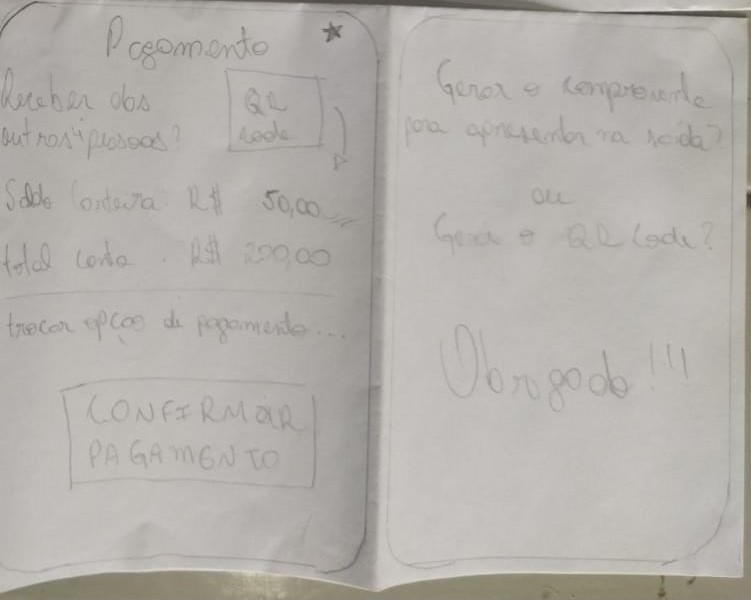 Pagamento
Receber das
outras 4 pessoas?
QR
code
Saldo Carteira: R$ 50,00
total conta . R$ 200,00
trocar opção de pagamento...
CONFIRMAR
PAGAMENTO
Gerar o comprovante
para apresentar na saída?
ou
Gerar o QR Code?
Obrigado!!!